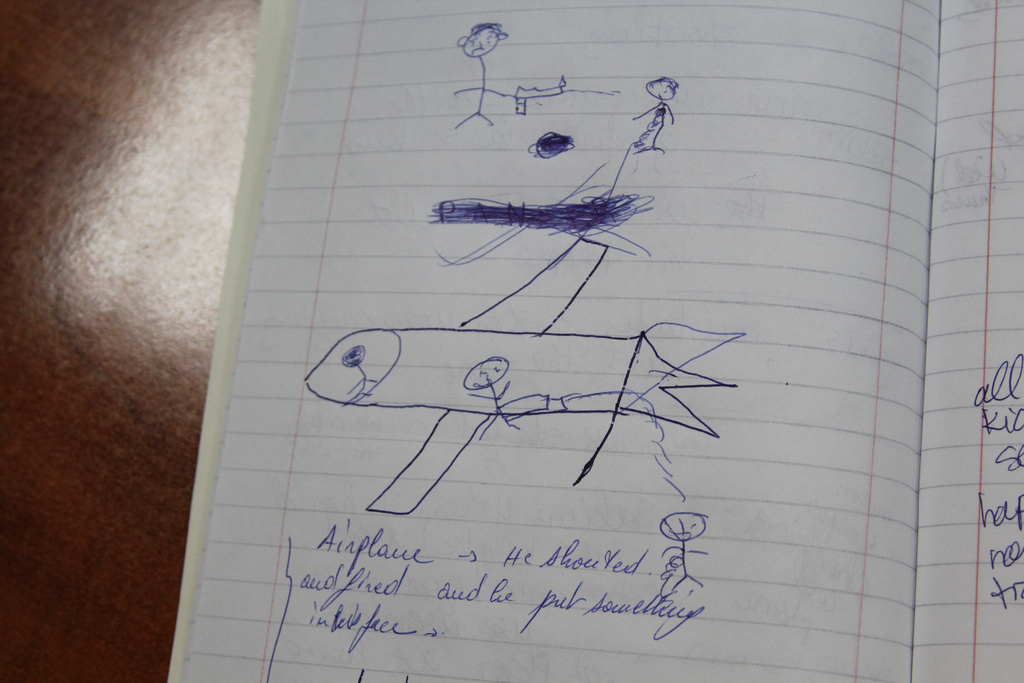 PAN
Airplane → He shouted.
and fired and he put something
in his face →.
all
kid
se
hap
no
tr